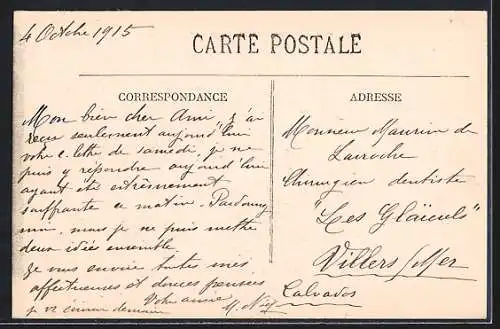 4 Octbre 1915
CARTE POSTALE
CORRESPONDANCE
Mon bien cher Ami, j'ai
reçu seulement aujourd'hui
votre c. lettre de samedi, je ne
puis y répondre aujourd'hui
ayant été extrêmement
souffrante ce matin. Pardonnez
moi, mais je ne puis mettre
deux idées ensemble
Je vous envoie toutes mes
affectueuses et douces pensées
demain
Votre amie
M.
ADRESSE
Monsieur Maurin de
Larroche
Chirurgien dentiste
"Les Glaïeuls"
Villers s/Mer
Calvados